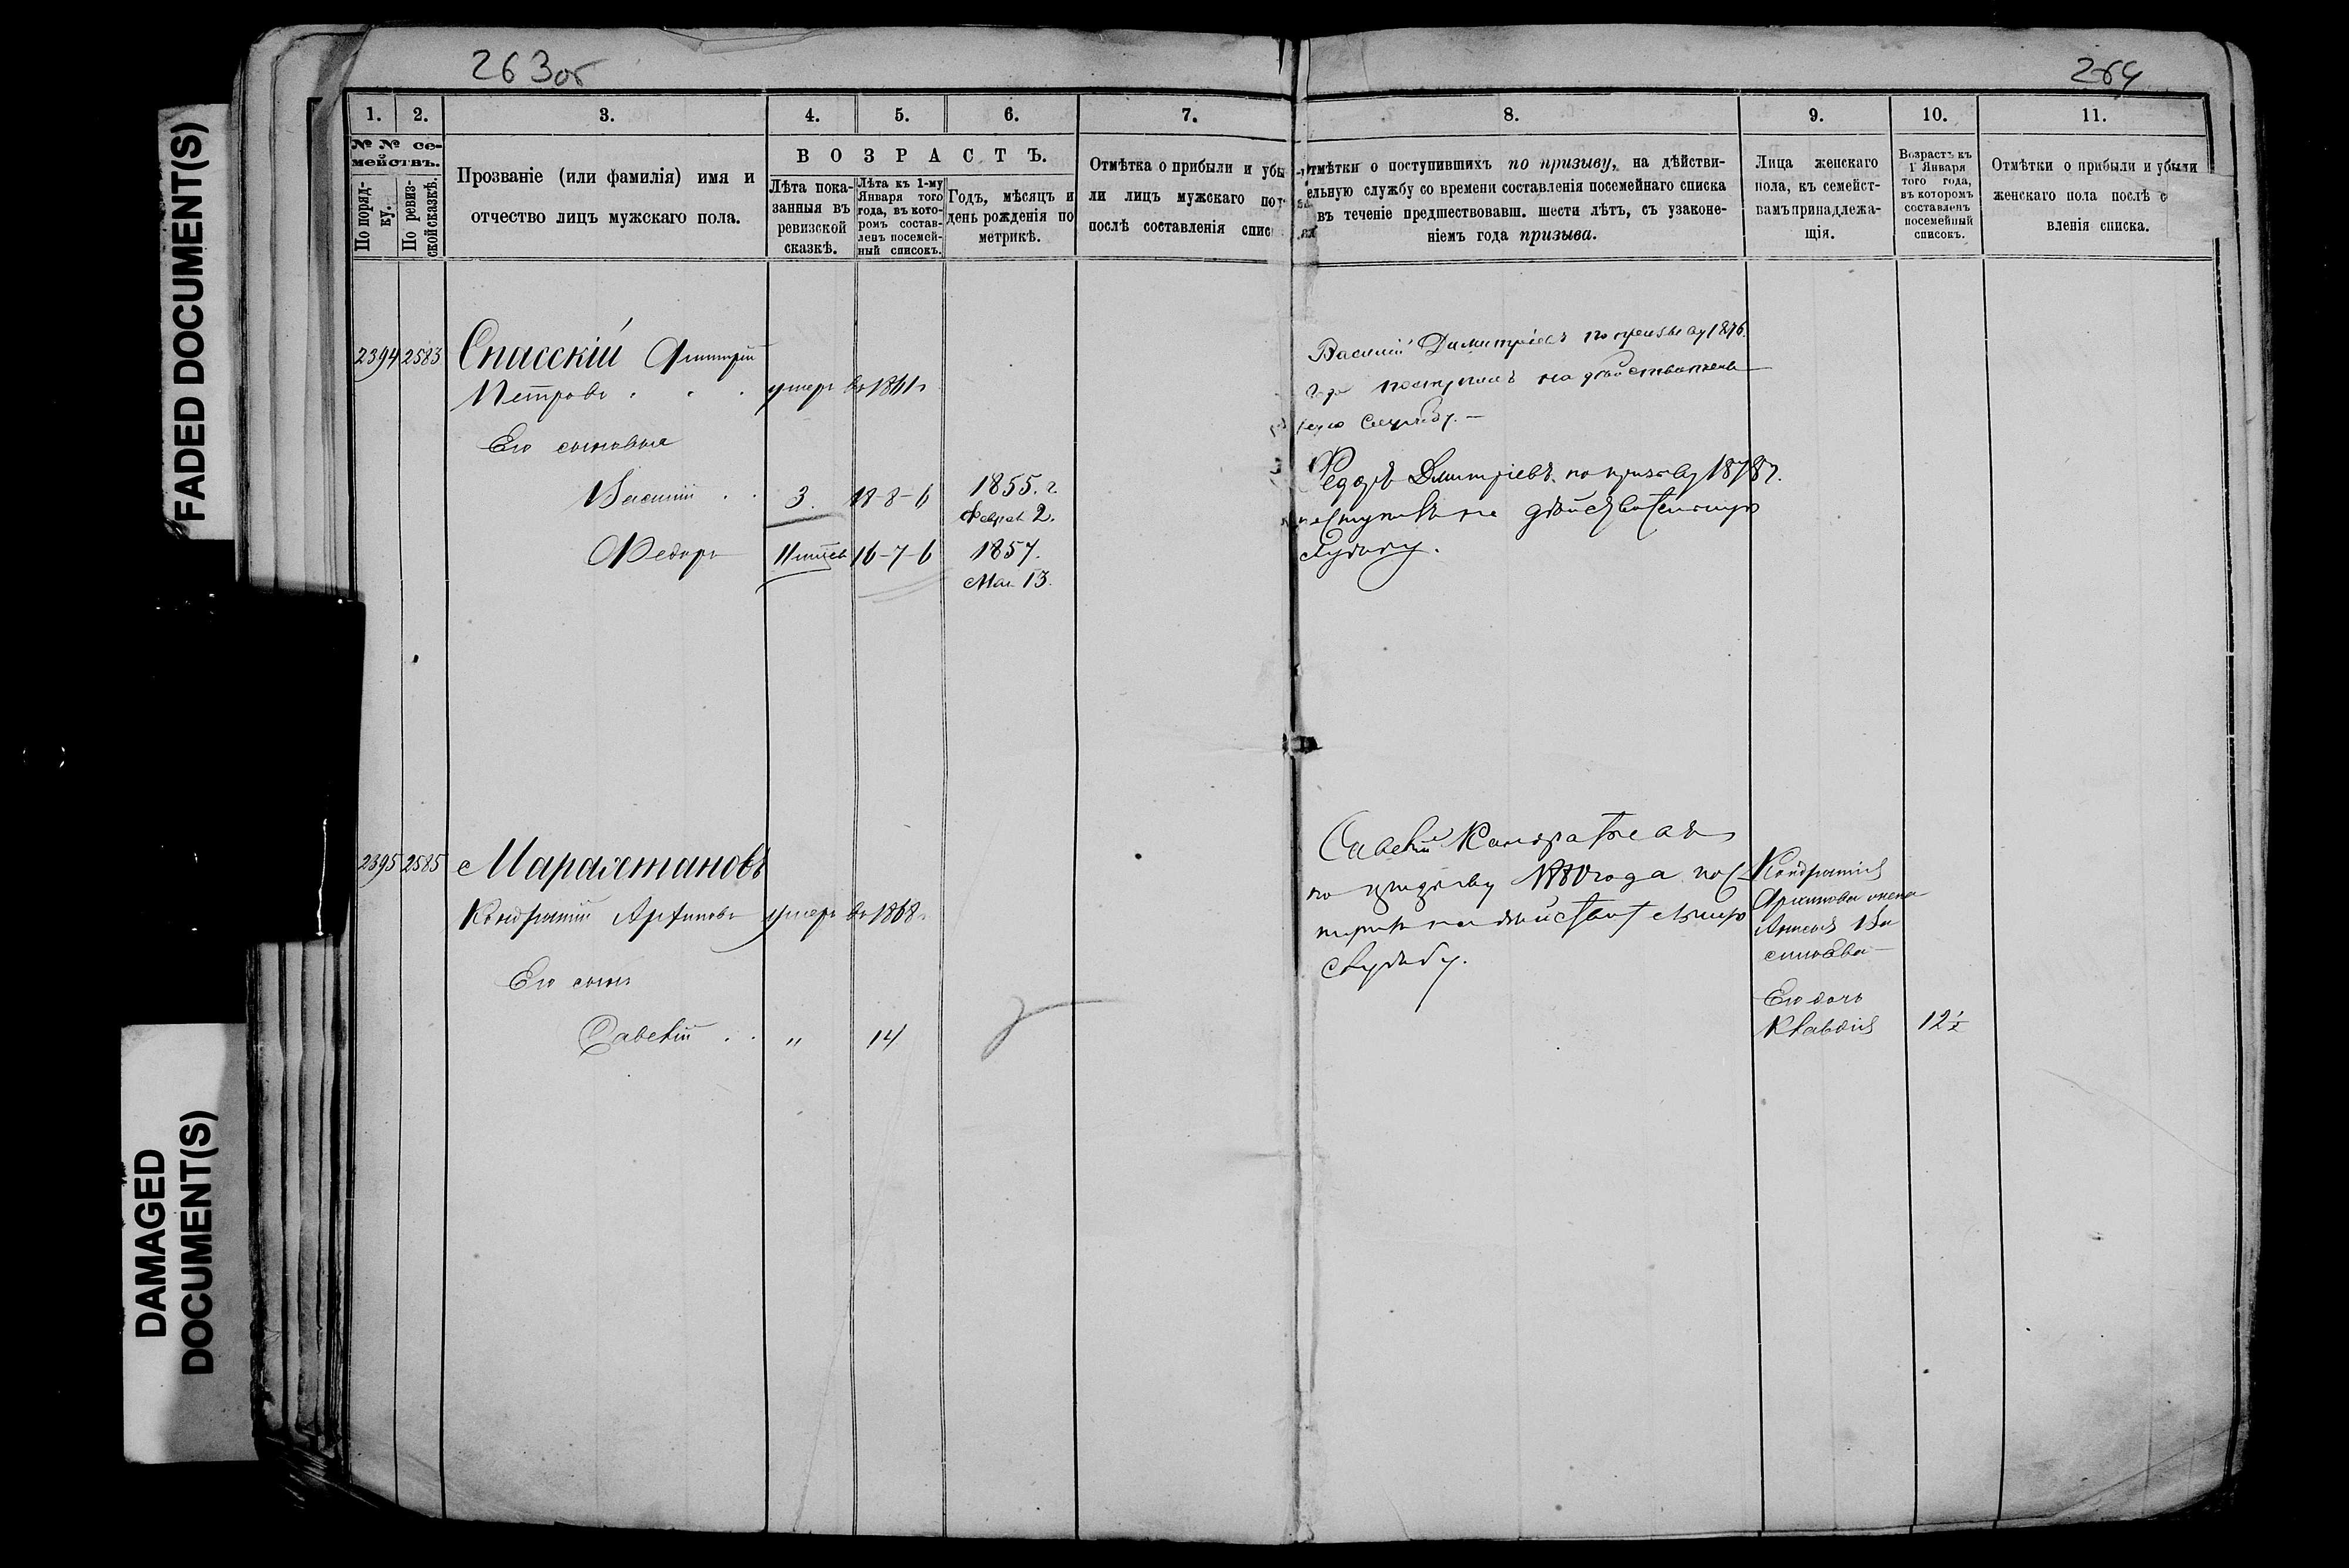 263об
264
FADED DOCUMENT(S)
DAMAGED
DOCUMENT(S)
1. 2. 3. 4. 5. 6. 7. 8. 9. 10. 11.
№ № се-
мействъ.
По поряд-
ку.
По ревиз-
ской сказкѣ.
Прозваніе (или фамилія) имя и
отчество лицъ мужскаго пола.
ВОЗРАСТЪ.
Лѣта пока-
занныя въ
ревизской
сказкѣ.
Лѣта къ 1-му
Января того
года, въ кото-
ромъ состав-
ленъ посемей-
ный списокъ.
Годъ, мѣсяцъ и
день рожденія по
метрикѣ.
Отмѣтка о прибыли и убы
ли лицъ мужскаго пол
послѣ составленія спис
Отмѣтки о поступившихъ по призыву, на дѣйстви-
ельную службу со времени составленія посемейнаго списка
въ теченіе предшествовавш. шести лѣтъ, съ узаконе-
ніемъ года призыва.
Лица женскаго
пола, къ семейст-
вамъ принадлежа-
щія.
Возрастъ къ
1 Января
того года,
въ которомъ
составленъ
посемейный
списокъ.
Отмѣтки о прибыли и убыли
женскаго пола послѣ с
вленія списка.
2394 2583 Спасскій Дмитрій
Петровъ умеръ въ 1861 г
Его сыновья
Василій 3. 18-8-6 1855. г.
Феврал 2.
Федоръ 16-7-6 1857.
Мая 13.
Василій Димитріевъ по призыву 1876.
года поступилъ на дѣйствитель
ную службу. —
Федоръ Дмитріевъ по призыву 1878 г.
поступилъ на дѣйствительную
службу.
2395 2585 Марахтановъ
Кондратій Архиповъ умеръ въ 1868 г
Его сынъ
Савелій „ 14
Савелій Кондратьевъ
по призыву 1880 года пос
тупилъ на дѣйствительную
службу.
Кондратія
Архипова жена
Ва
сильева
Его дочь
Клавдія 12½